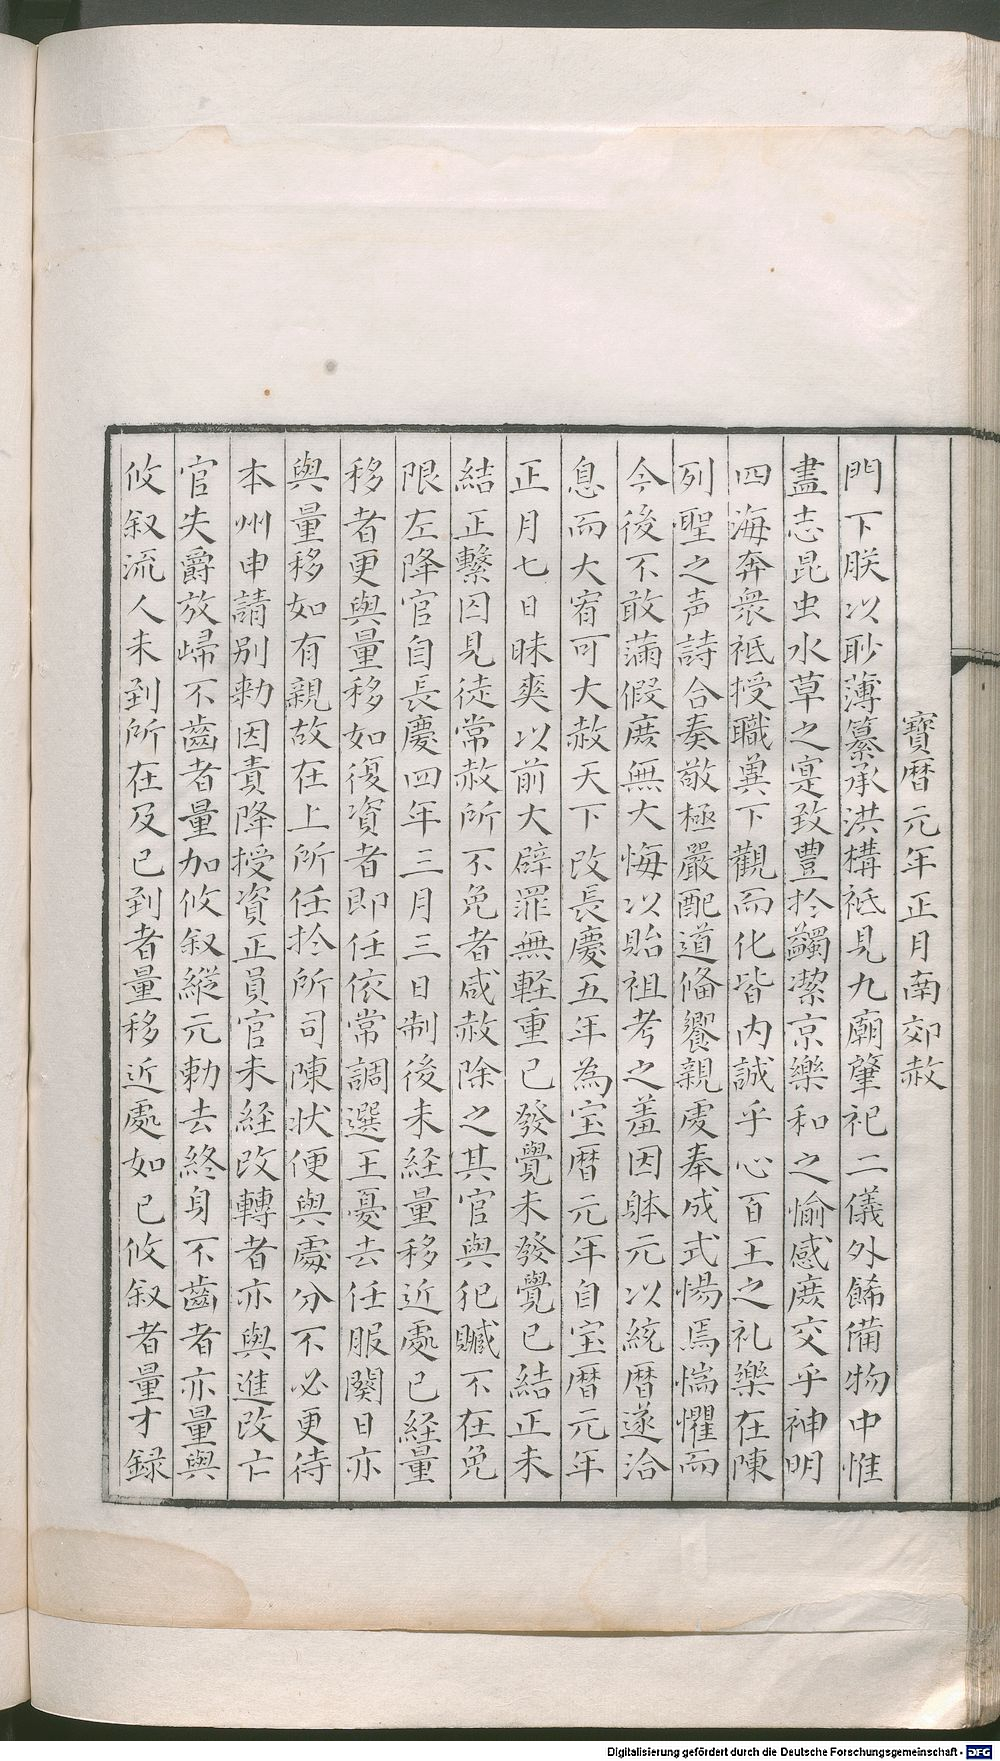 寶暦元年正月南郊赦
門下朕以眇薄纂承洪構祗見九廟肇祀二儀外餙備物中惟
盡志昆虫水草之寔致豊扵蠲潔京樂和之愉感庻交乎神明
四海奔衆祗授職冀下觀而化皆内誠乎心百王之礼樂在陳
列聖之声詩合奏敬極嚴配道俻饗親䖏奉成式惕焉惴懼而
今後不敢蒲假庻無大悔以貽祖考之羞因躰元以統暦遂洽
息而大宥可大赦天下改長慶五年為宝暦元年自宝暦元年
正月七日昧爽以前大辟罪無軽重已發覺未發覺已結正未
結正繫囚見徒常赦所不免者咸赦除之其官與犯贓不在免
限左降官自長慶四年三月三日制後未経量移近處已經量
移者更與量移如復資者即任依常調選王憂去任服闋日亦
與量移如有親故在上所任扵所司陳状便與處分不必更待
本州申請別勅因責降授資正員官未経改轉者亦與進改亡
官失爵放歸不齒者量加攸叙縦元勅去終身不齒者亦量與
攸叙流人未到所在及已到者量移近處如已攸叙者量才録
Digitalisierung gefördert durch die Deutsche Forschungsgemeinschaft - DFG